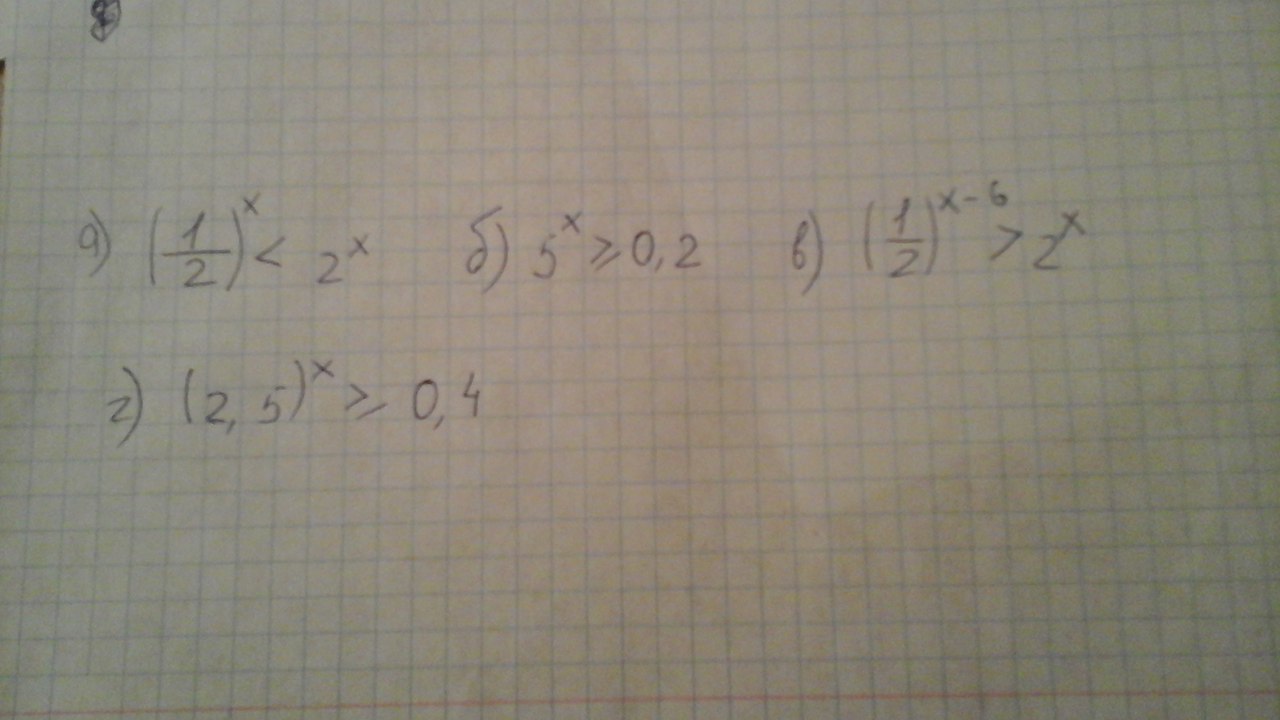 а) (1/2)^x < 2^x б) 5^x ⩾ 0,2 в) (1/2)^{x-6} > 2^x
г) (2,5)^x ⩾ 0,4